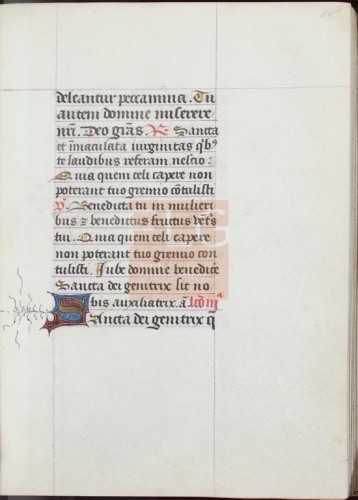 deleantur peccamina. Tu
autem domine miserere
nr̄i. Deo grãs. R. Sancta
et immaculata virginitas q̄b⁹
te laudibus referam nescio:
Quia quem celi capere non
poterant tuo gremio cõtulisti
V. Benedicta tu in mulieri
bus ⁊ benedictus fructus vētris
tui. Quia quem celi capere
non poterant tuo gremio con
tulisti. Iube domine benedice
Sancta dei genitrix sit no
bis auxiliatrix. ā. lcõ iijª
Sancta dei genitrix q̄